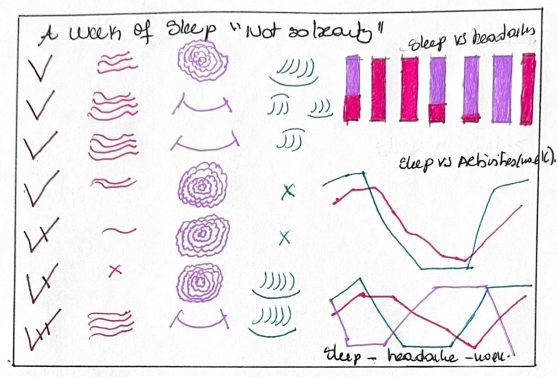 A week of Sleep "Not so beauty"
Sleep vs headache
Sleep vs Activities (work).
Sleep - headache - work.